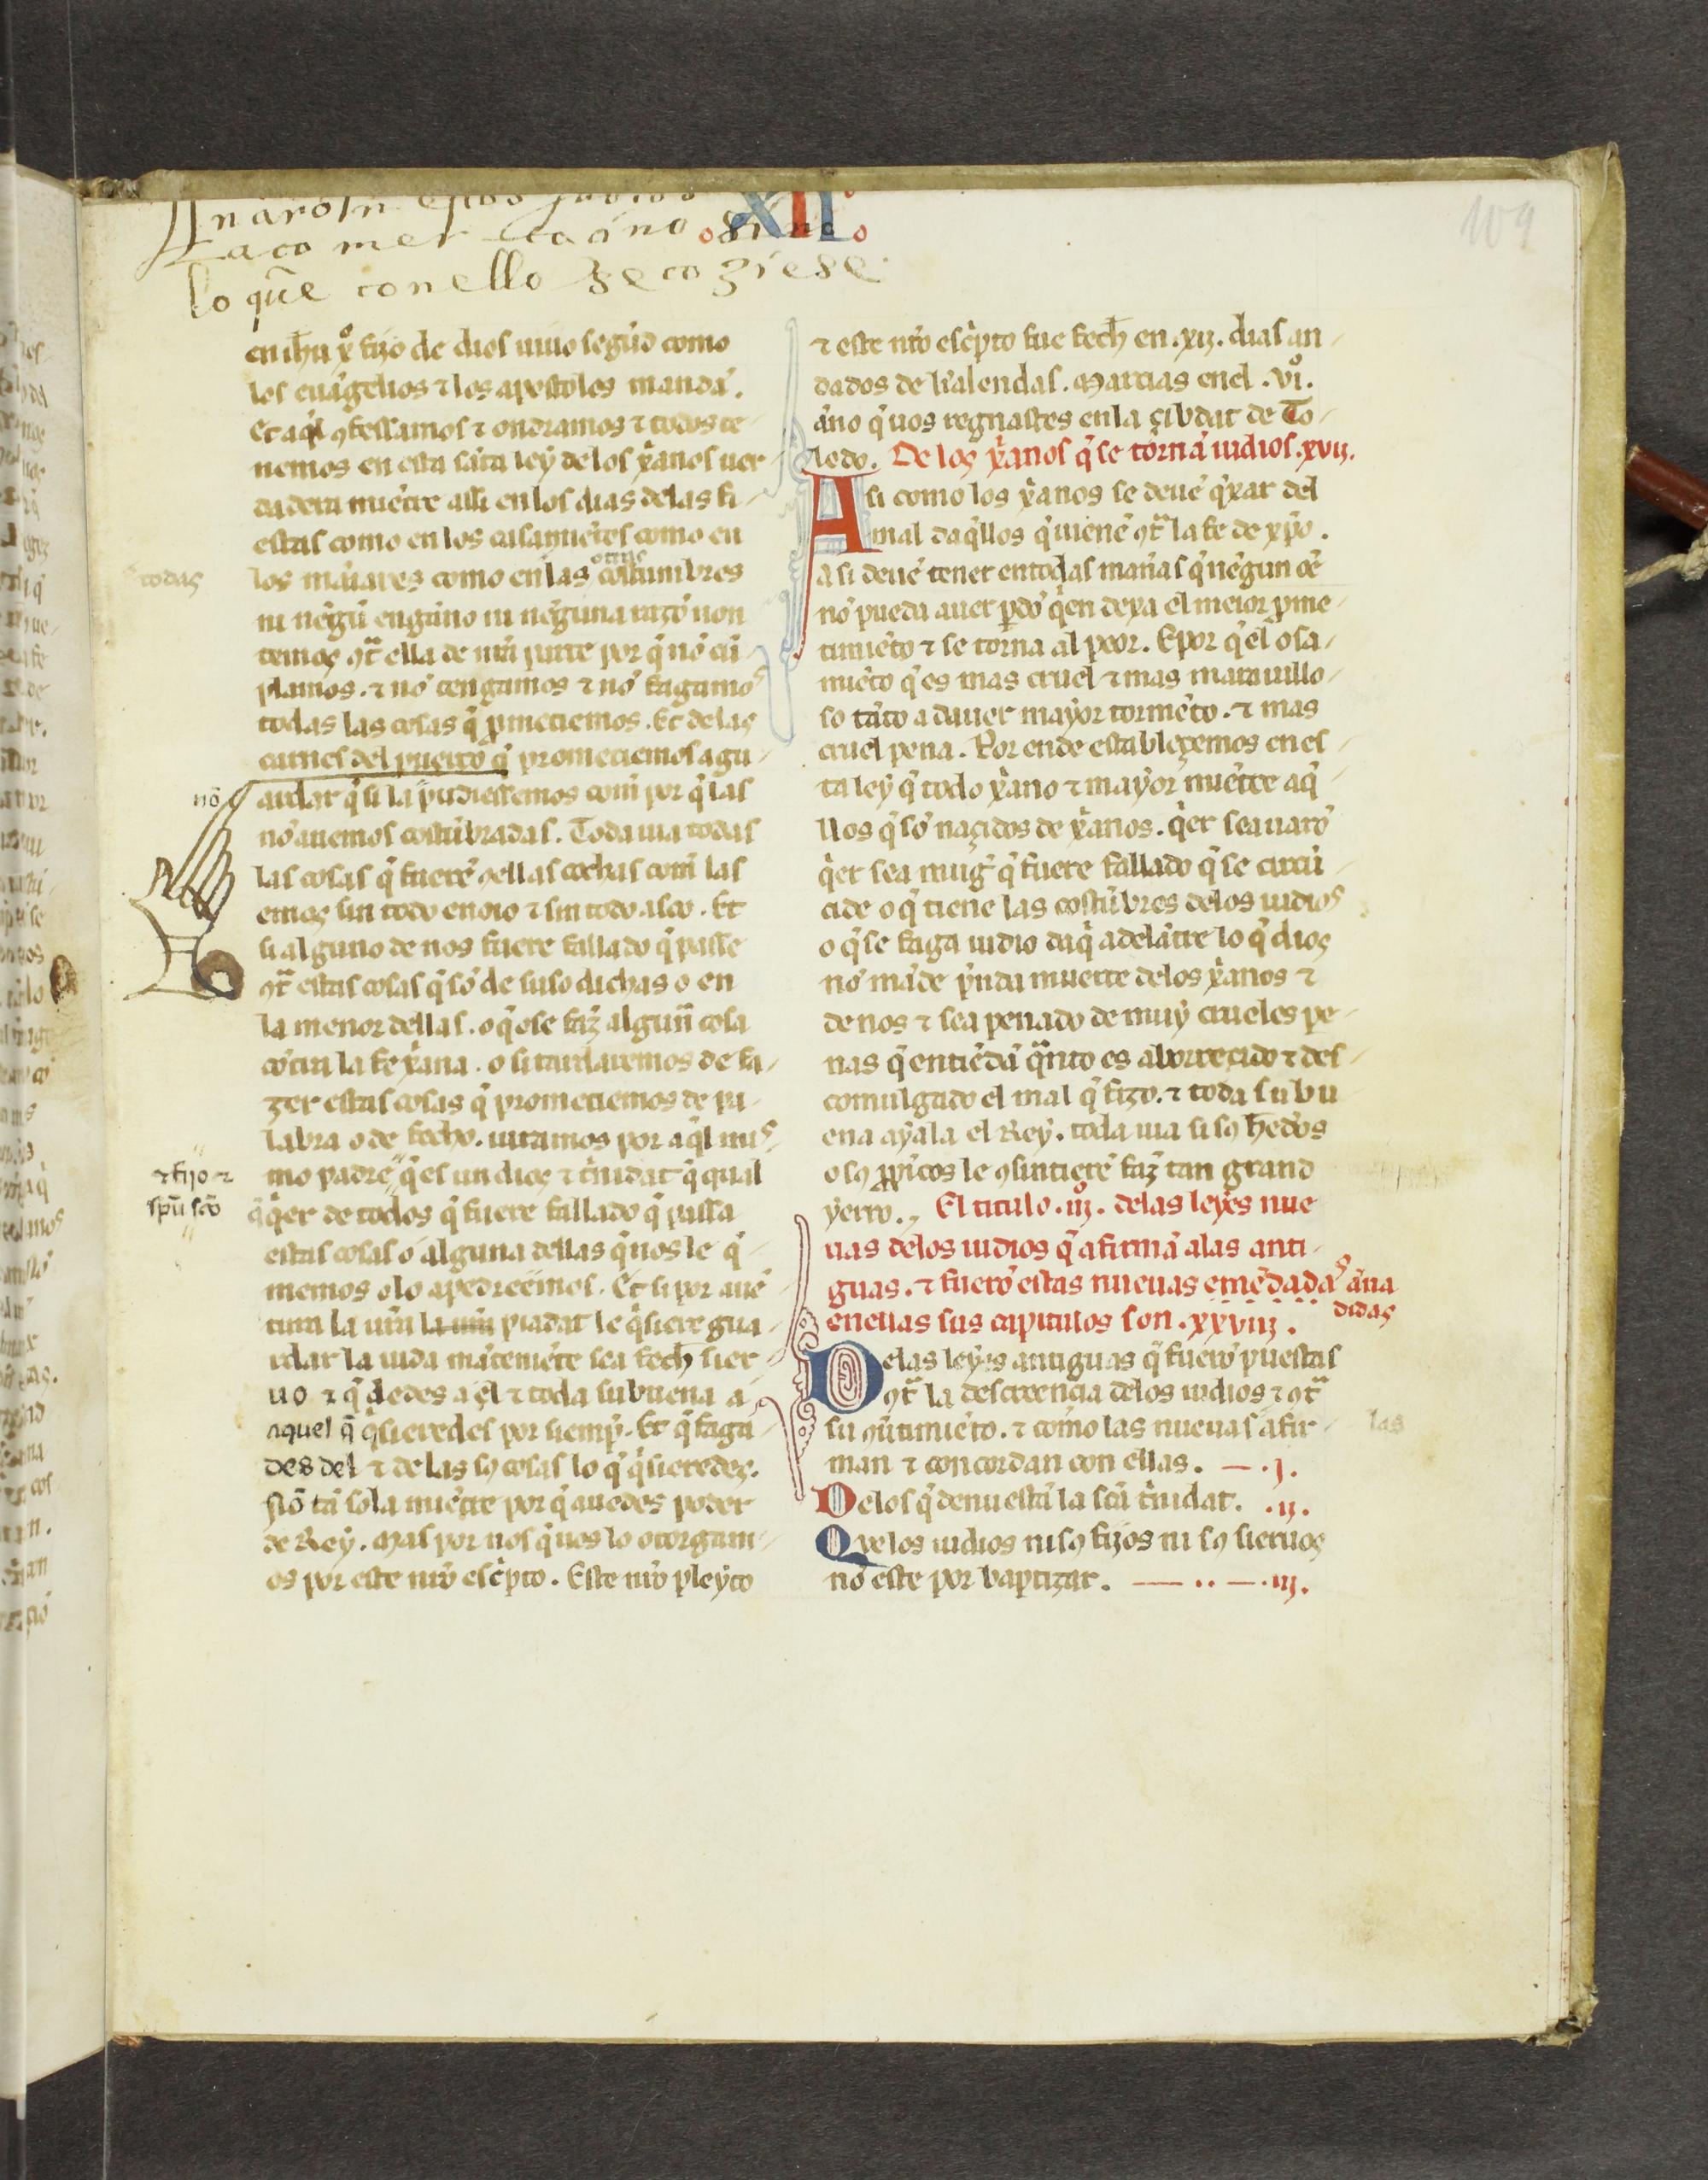 109
XII
lo que conello se coziese
en ihu xo fijo de dios uiuo segund como
los euangelios ⁊ los apostolos mandan.
Et aql ꝯfessamos ⁊ ondramos ⁊ todos te
nemos en esta santa ley de los xanos uer
dadera miente assi en los dias delas fi
estas como en los casamientos como en
todas
los maiares como en las otras costumbres
ni negun engano ni neguna razon non
temos ꝯtra ella de nra parte por q no cun
plamos. ⁊ no tengamos ⁊ no fagamos
todas las cosas q prometiemos. Et delas
carnes del puerco q prometiemos agu
no
ardar q si la pudiessemos comer por q las
no auemos costubradas. Toda uia todas
las cosas q fuere ꝯellas cochas com las
emos sin todo enoio ⁊ sin todo asco. Et
si alguno de nos fuere fallado q passe
ꝯtra estas cosas q so de suso dichas o en
la menor dellas. o q ose faz alguna cosa
contra la fe xana. o si tardaremos de fa
zer estas cosas q prometiemos de pa
labra o de fecho. iuramos por aql mis
⁊ fijo ⁊
spu sco
mo padre q es un dios ⁊ trinidat q qual
qer de todos q fuere fallado q passa
estas cosas o alguna dellas q nos le q
memos o lo apedreemos. Et si por aue
tura la ura la ura piadat le qsiere gua
rdar la uida manteniente sea fecho sier
uo ⁊ q dedes a el ⁊ toda su buena a
aquel q qsieredes por siemp. Et q faga
des del ⁊ de las sꝯ cosas lo q qsieredes.
sino tan sola miente por q auedes poder
de Rey. Mas por nos q uos lo otorgam
os por este nro escpto. Este nro pleyto
⁊ este nro escpto fue fecho en .xii. dias an
dados de kalendas. Marcias enel .vio.
ano q uos regnastes en la çibdat de To
ledo. De los xanos q se torna iudios .xvii.
Asi como los xanos se deue qxar del
mal daqllos q uiene ꝯtra la fe de xpo.
asi deue tener en todas manas q negun ome
no pueda auer pdo qen dexa el meior pme
timieto ⁊ se torna al peor. E por q el osa
mieto q es mas cruel ⁊ mas marauillo
so tato a dauer mayor tormeto. ⁊ mas
cruel pena. Por ende establecemos en es
ta ley q todo xano ⁊ mayor miente aq
llos q so naçidos de xanos. qer sea uaro
qer sea mugr q fuere fallado q se circu
cide o q tiene las costubres delos iudios
o q se faga iudio daq adelante lo q dios
no mande prenda muerte delos xanos ⁊
de nos ⁊ sea penado de muy crueles pe
nas q entieda qnto es aborreçido ⁊ des
comulgado el mal q fizo. ⁊ toda su bu
ena ayala el Rey. toda uia si sꝯ hedos
o sꝯ ppncos le ꝯsintiere faz tan grand
yerro. El titulo .iii. delas leyes nue
uas delos iudios q afirma alas anti
guas. ⁊ fuero estas nueuas emedadas ana
didas
enellas sus capitulos son .xxviii.
Delas leyes antiguas q fuero puestas
ꝯtra la descreencia delos iudios ⁊ ꝯtra
su ꝯutimieto. ⁊ como las nueuas afir
las
man ⁊ concordan con ellas. .j.
Delos q denuesta la sca trinidat. .ii.
Que los iudios ni sꝯ fijos ni sꝯ sieruos
no este por baptizar. .iii.